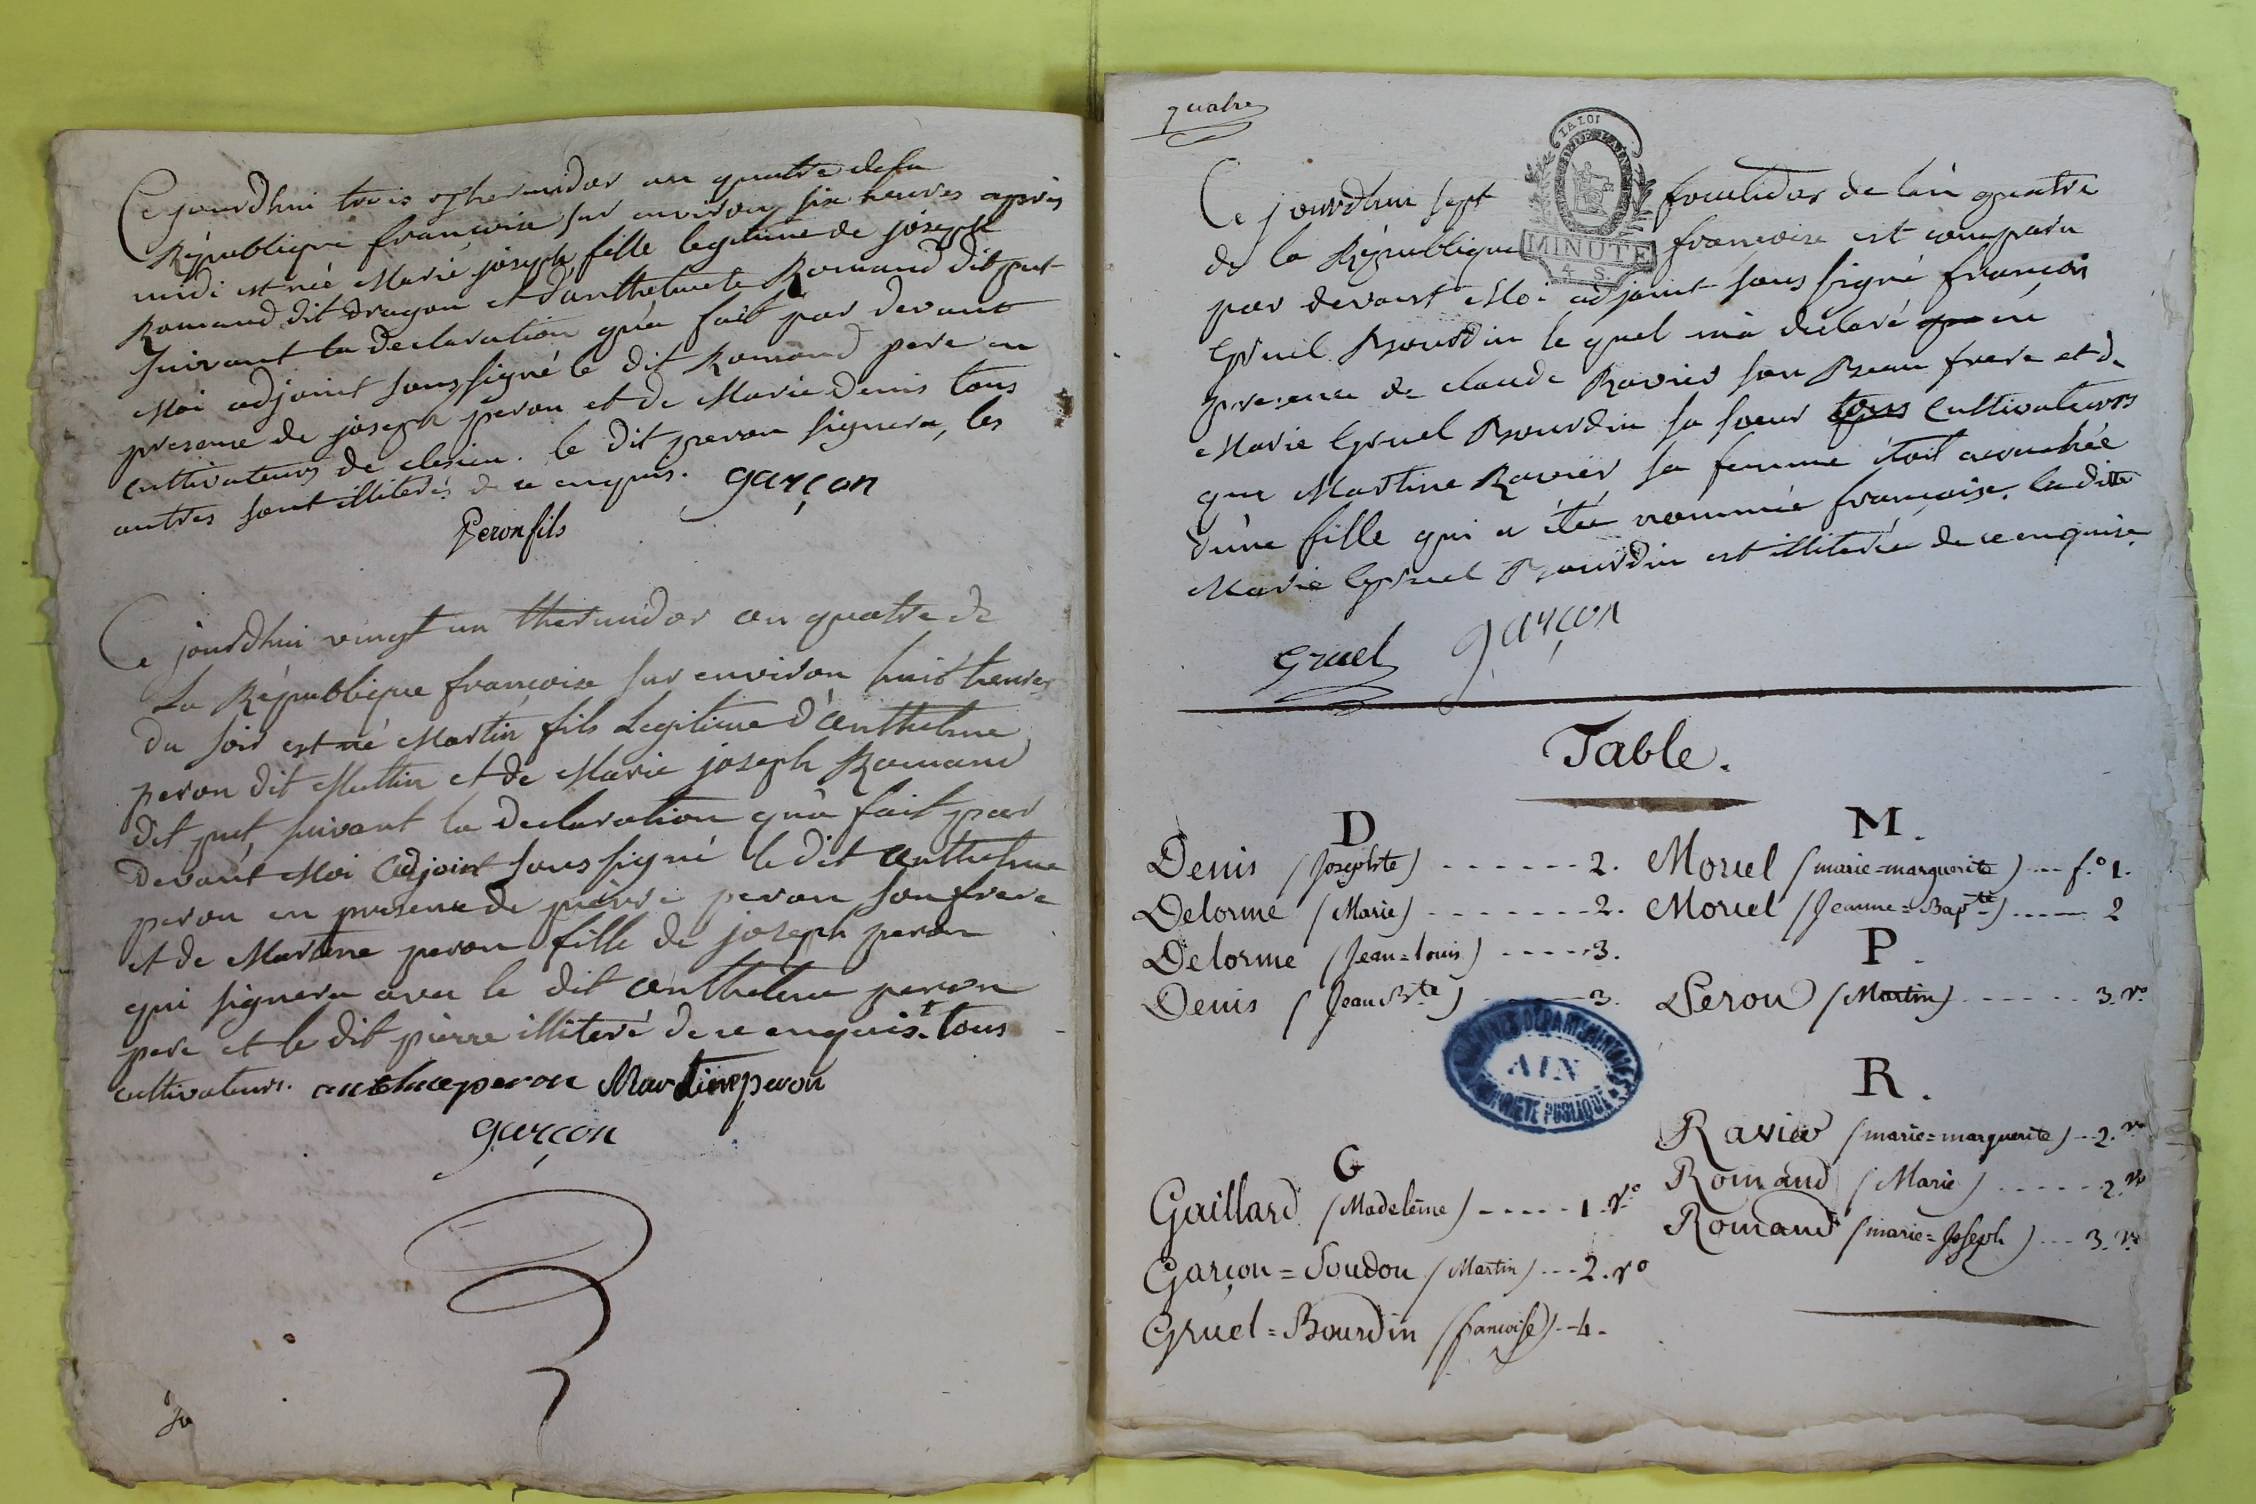 Cejourdhui trois thermidor an quatre de la
République françoise sur environ six heures après
midi est née Marie joseph fille legitime de joseph
Romand dit dragon et d'anthelmete Romand dit put
suivant la declaration qu'a fait par devant
Moi adjoint soussigné le dit Romand pere en
presence de joseph peron et de Marie Denis tous
cultivateurs de clesieu. le dit peron signera, les
autres sont illiterés de ce enquis. garçon
Peron fils
Ce jourdhui vingt un thermidor an quatre de
La République françoise sur environ huit heures
du soir est né Martin fils Legitime d'anthelme
peron dit Muttin et de Marie joseph Romand
dit put, suivant la declaration qu'a fait par
devant Moi adjoint soussigné le dit anthelme
peron en presence de pierre peron son frere
et de Martine peron fille de joseph peron
qui signera avec le dit anthelme peron
pere et le dit pierre illiteré de ce enquis. tous
cultivateurs. anthelme peron Martine peron
garçon
quatre
LA LOI
MINUTE
4 S.
Ce jourdhui sept fructidor de l'an quatre
de la République françoise est comparu
par devant Moi adjoint sous signé françois
Gruel Bourdin le quel m'a declaré que en
presence de claude Ravier son Beau frere et de
Marie Gruel Bourdin sa soeur tous cultivateurs
que Martine Ravier sa femme étoit acouchée
d'une fille qui a été nommée françoise. la ditte
Marie Gruel Bourdin est illiterée de ce enquise.
Gruel garçon
Table.
D
Denis (Josephte) ------ 2.
Delorme (Marie) ------- 2.
Delorme (Jean=louis) ----- 3.
Denis (Jean Bte) ------ 3.
M.
Moruel (marie=marguerite) --- f.o 1.
Moruel (Jeanne=Baptte) ----- 2
P.
Peron (Martin) ------ 3. vo
ARCHIVES DÉPARTEMENTALES
AIN
PROPRIÉTÉ PUBLIQUE
R.
Ravier (marie=marguerite) -- 2. vo
Romand (Marie) ----- 2. vo
Romand (marie=Joseph) --- 3. vo
G
Gaillard (Madeleine) ----- 1. vo
Garçon=Soudon (Martin) --- 2. vo
Gruel=Bourdin (françoise) -- 4.